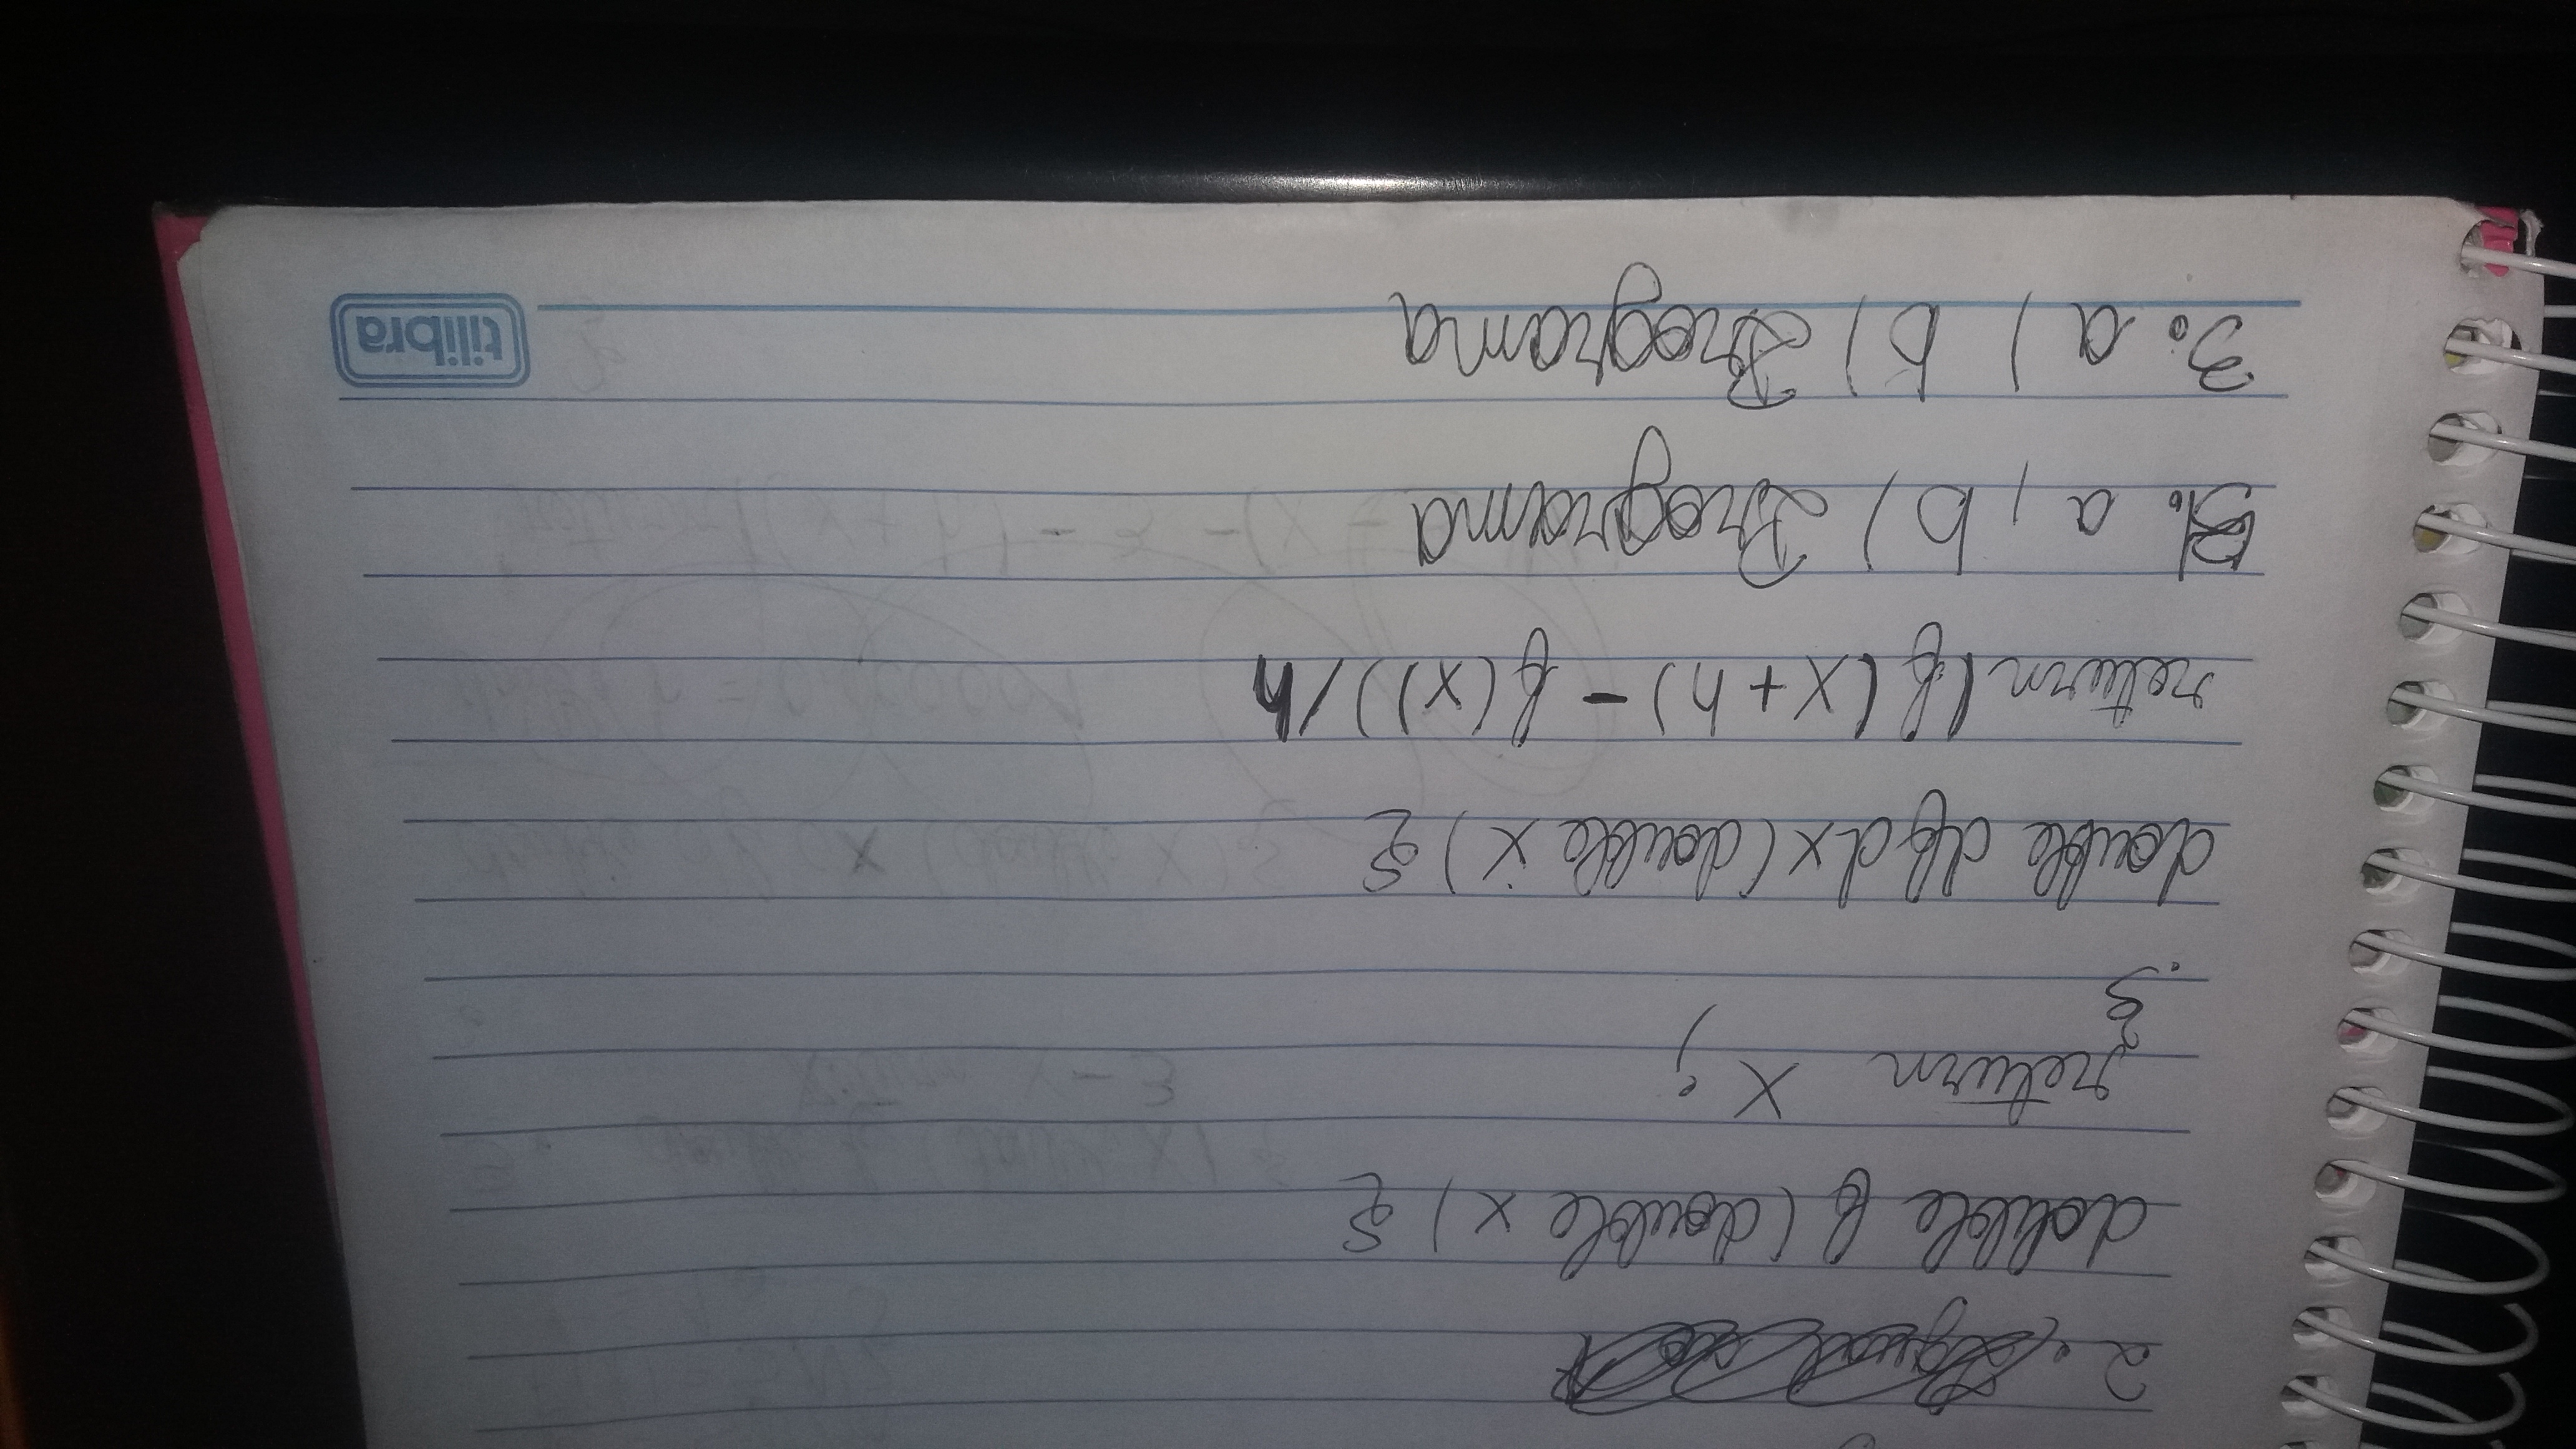 2
double f (double x) {
return x;
};
double dfdx (double x) {
return (f (x + h) - f (x)) / h
. a, b) Programa
3. a) b) Programa
tilibra